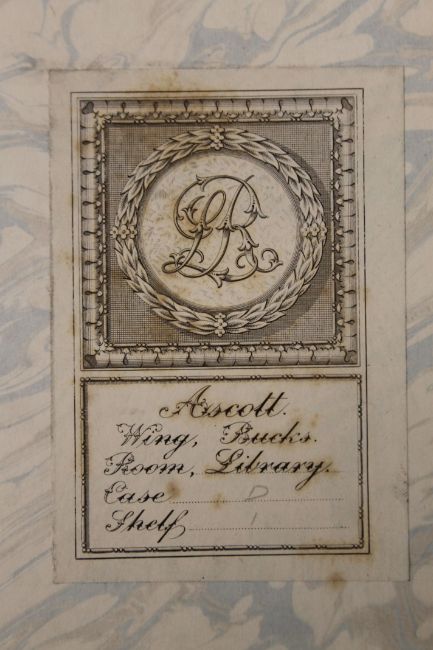 LR
Ascott.
Wing, Bucks.
Room, Library.
Case D
Shelf 1